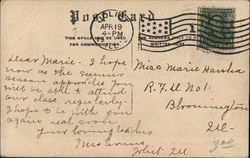 Post Card
JOLIET
APR 19
4-PM
THIS SPACE MAY BE USED
FOR COMMUNICATION
1
Dear Marie - I hope
now as the summer
season approaches you
will be able to attend
our class regularly.
I hope to be with you
again real soon
Your loving teacher
Miss
Joliet Ill
Miss Marie
R.F.D. No 1.
Bloomington
Ill -